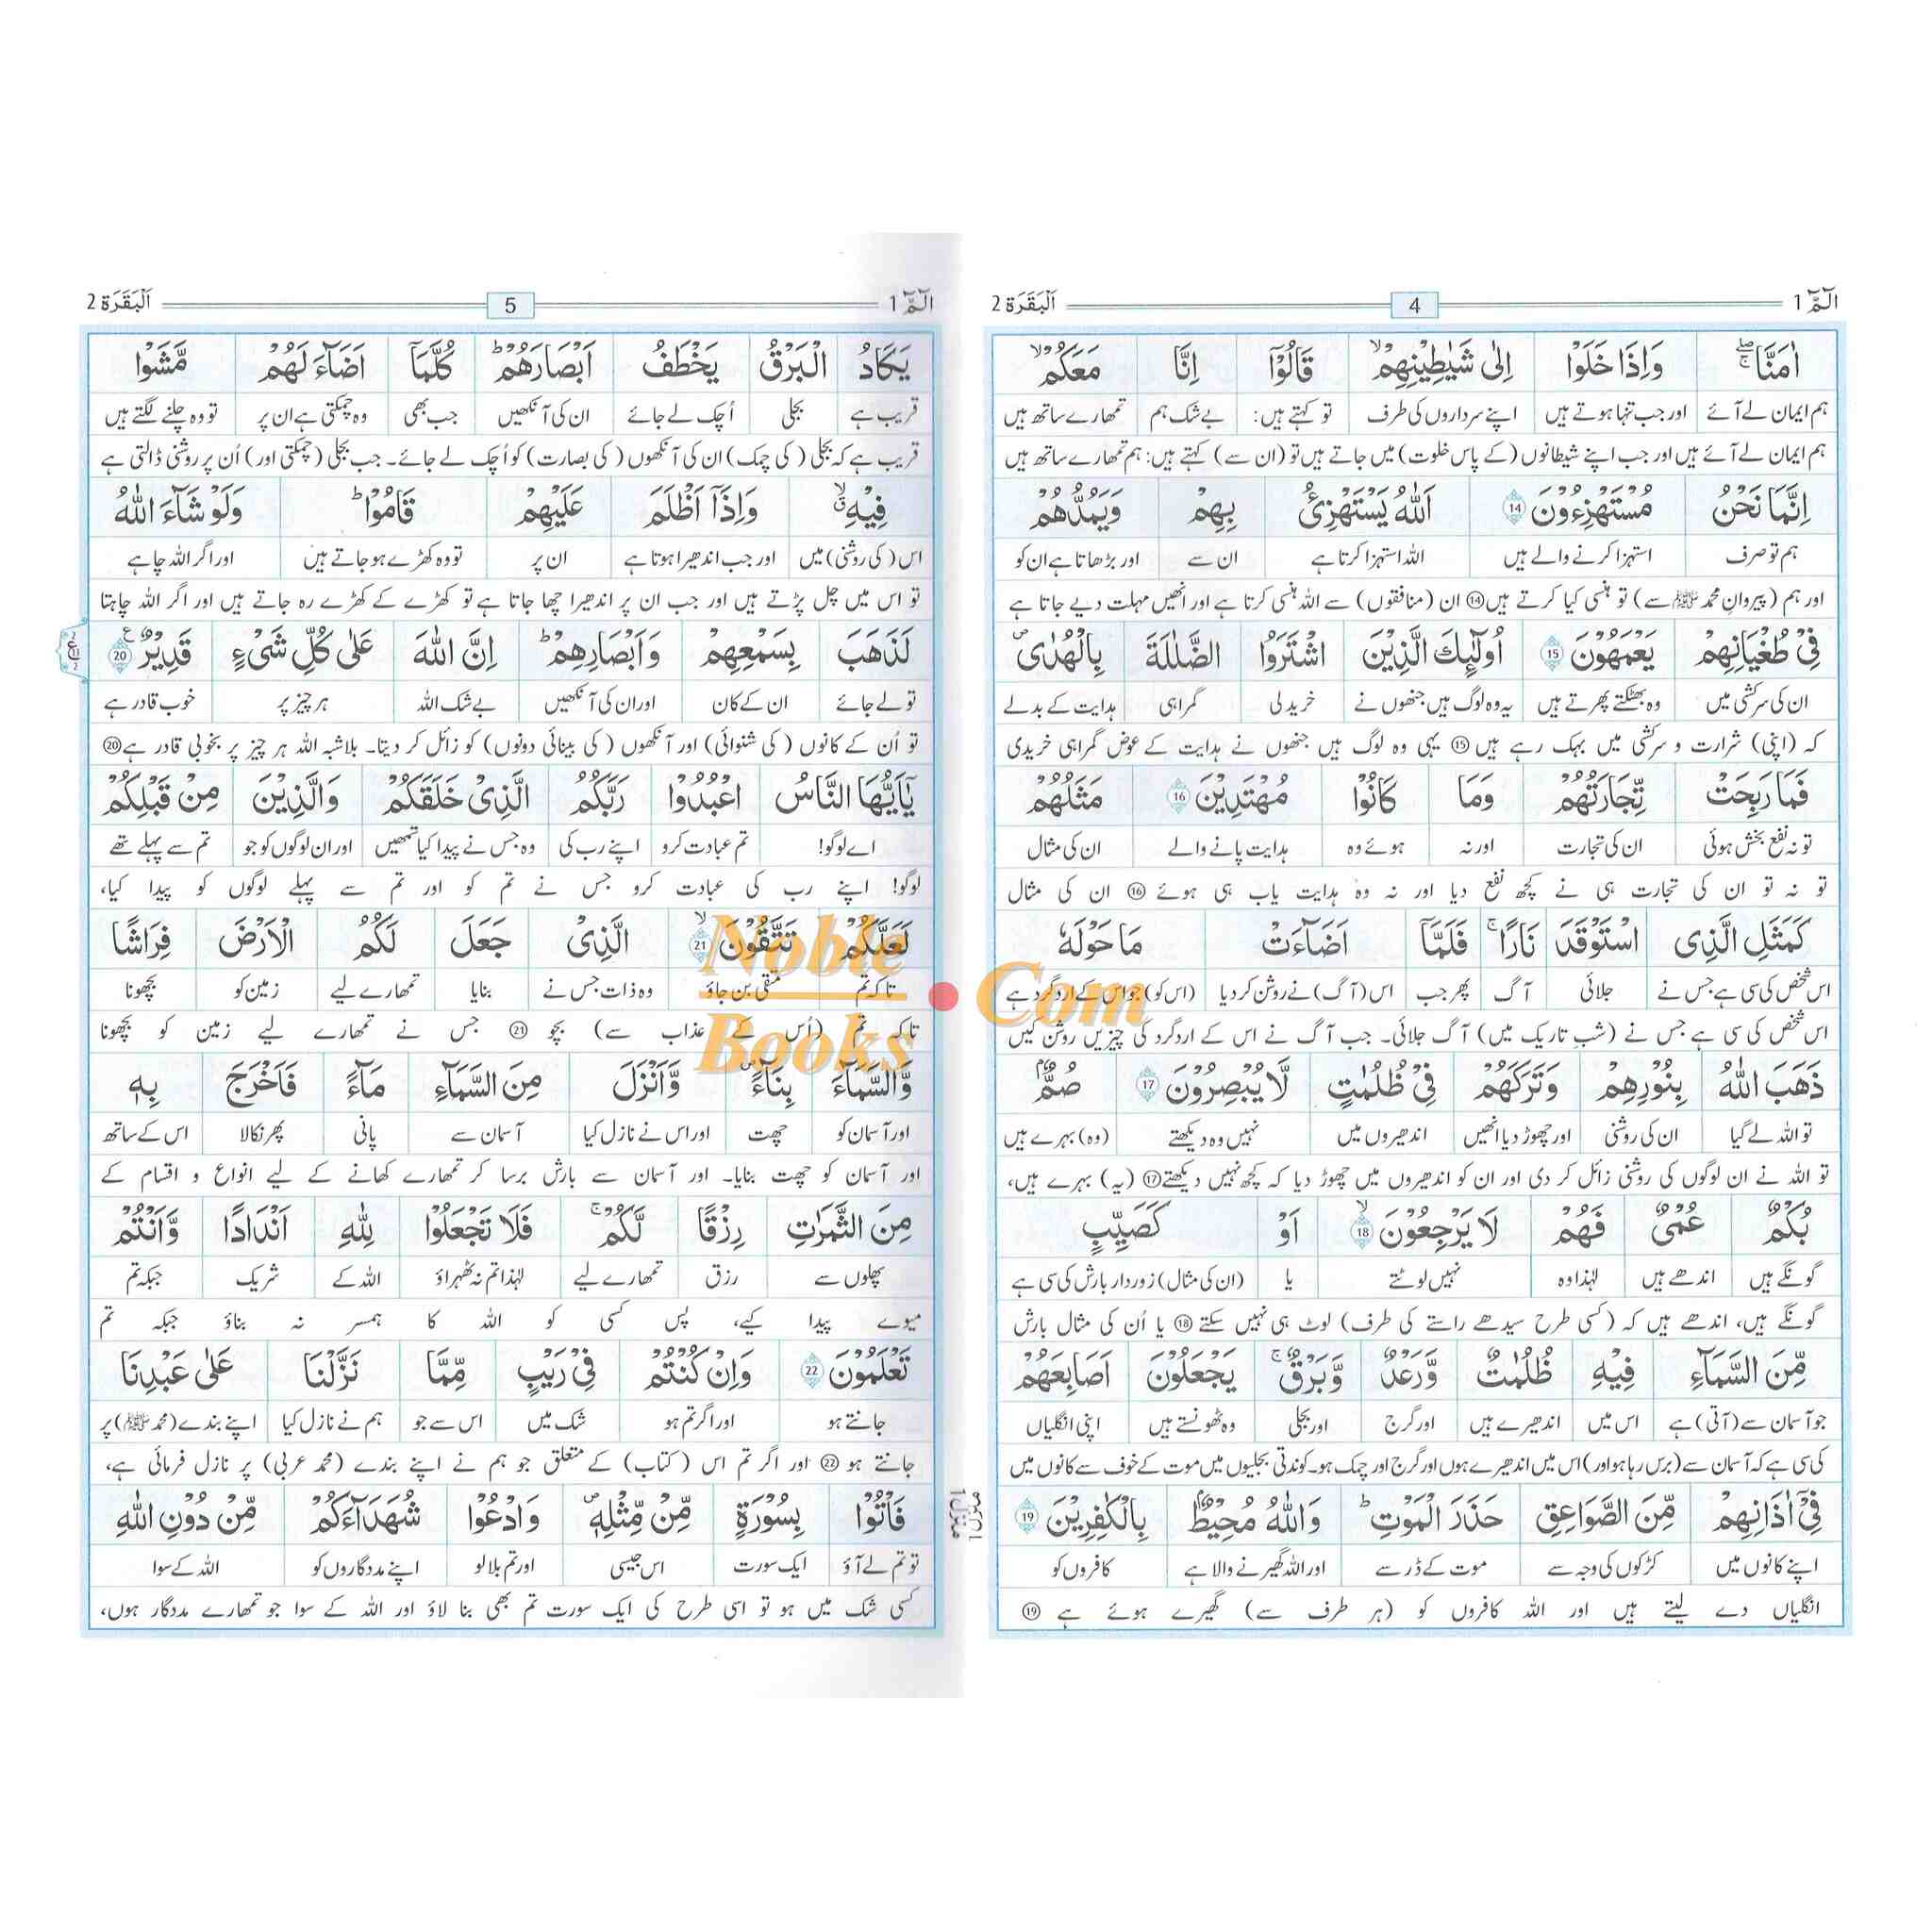 الٓمّٓ 1
4
اَلْبَقَرَة 2
اٰمَنَّا ۚۖ وَاِذَا خَلَوْا اِلٰى شَيٰطِيْنِهِمْ ۙ قَالُوْٓا اِنَّا مَعَكُمْ ۙ
ہم ایمان لے آئے اور جب تنہا ہوتے ہیں اپنے سرداروں کی طرف تو کہتے ہیں: بے شک ہم تمھارے ساتھ ہیں
ہم ایمان لے آئے ہیں اور جب اپنے شیطانوں (کے پاس خلوت) میں جاتے ہیں تو (ان سے) کہتے ہیں: ہم تمھارے ساتھ ہیں
اِنَّمَا نَحْنُ مُسْتَهْزِءُوْنَ 14 اَللّٰهُ يَسْتَهْزِئُ بِهِمْ وَيَمُدُّهُمْ
ہم تو صرف استہزا کرنے والے ہیں اللہ استہزا کرتا ہے ان سے اور بڑھاتا ہے ان کو
اور ہم (پیروانِ محمد ﷺ سے) تو ہنسی کیا کرتے ہیں ⑭ ان (منافقوں) سے اللہ ہنسی کرتا ہے اور انھیں مہلت دیے جاتا ہے
فِيْ طُغْيَانِهِمْ يَعْمَهُوْنَ 15 اُولٰٓئِكَ الَّذِيْنَ اشْتَرَوُا الضَّلٰلَةَ بِالْهُدٰى ۪
ان کی سرکشی میں وہ بھٹکتے پھرتے ہیں یہ وہ لوگ ہیں جنھوں نے خرید لی گمراہی ہدایت کے بدلے
کہ (اپنی) شرارت و سرکشی میں بہک رہے ہیں ⑮ یہی وہ لوگ ہیں جنھوں نے ہدایت کے عوض گمراہی خریدی
فَمَا رَبِحَتْ تِّجَارَتُهُمْ وَمَا كَانُوْا مُهْتَدِيْنَ 16 مَثَلُهُمْ
تو نہ نفع بخش ہوئی ان کی تجارت اور نہ ہوئے وہ ہدایت پانے والے ان کی مثال
تو نہ تو ان کی تجارت ہی نے کچھ نفع دیا اور نہ وہ ہدایت یاب ہی ہوئے ⑯ ان کی مثال
كَمَثَلِ الَّذِى اسْتَوْقَدَ نَارًا ۚ فَلَمَّآ اَضَآءَتْ مَا حَوْلَهٗ
اس شخص کی سی ہے جس نے جلائی آگ پھر جب اس (آگ) نے روشن کر دیا (اس کو) جو اس کے ارد گرد ہے
اس شخص کی سی ہے جس نے (شب تاریک میں) آگ جلائی۔ جب آگ نے اس کے اردگرد کی چیزیں روشن کیں
ذَهَبَ اللّٰهُ بِنُوْرِهِمْ وَتَرَكَهُمْ فِيْ ظُلُمٰتٍ لَّا يُبْصِرُوْنَ 17 صُمٌّۢ
تو اللہ لے گیا ان کی روشنی اور چھوڑ دیا انھیں اندھیروں میں نہیں وہ دیکھتے (وہ) بہرے ہیں
تو اللہ نے ان لوگوں کی روشنی زائل کر دی اور ان کو اندھیروں میں چھوڑ دیا کہ کچھ نہیں دیکھتے ⑰ (یہ) بہرے ہیں،
بُكْمٌ عُمْيٌ فَهُمْ لَا يَرْجِعُوْنَ ۙ 18 اَوْ كَصَيِّبٍ
گونگے ہیں اندھے ہیں لہٰذا وہ نہیں لوٹتے یا (ان کی مثال) زور دار بارش کی سی ہے
گونگے ہیں، اندھے ہیں کہ (کسی طرح سیدھے راستے کی طرف) لوٹ ہی نہیں سکتے ⑱ یا اُن کی مثال بارش
مِّنَ السَّمَآءِ فِيْهِ ظُلُمٰتٌ وَّرَعْدٌ وَّبَرْقٌ ۚ يَجْعَلُوْنَ اَصَابِعَهُمْ
جو آسمان سے (آتی) ہے اس میں اندھیرے ہیں اور گرج اور بجلی وہ ٹھونستے ہیں اپنی انگلیاں
کی سی ہے کہ آسمان سے (برس رہا ہو اور) اس میں اندھیرے ہوں اور گرج اور چمک ہو۔ کوندتی بجلیوں میں موت کے خوف سے کانوں میں
فِيْٓ اٰذَانِهِمْ مِّنَ الصَّوَاعِقِ حَذَرَ الْمَوْتِ ؕ وَاللّٰهُ مُحِيْطٌۢ بِالْكٰفِرِيْنَ 19
اپنے کانوں میں کڑکوں کی وجہ سے موت کے ڈر سے اور اللہ گھیرنے والا ہے کافروں کو
انگلیاں دے لیتے ہیں اور اللہ کافروں کو (ہر طرف سے) گھیرے ہوئے ہے ⑲
منزل 1
الٓمّٓ 1
5
اَلْبَقَرَة 2
يَكَادُ الْبَرْقُ يَخْطَفُ اَبْصَارَهُمْ ؕ كُلَّمَآ اَضَآءَ لَهُمْ مَّشَوْا
قریب ہے بجلی اُچک لے جائے ان کی آنکھیں جب بھی وہ چمکتی ہے ان پر تو وہ چلنے لگتے ہیں
قریب ہے کہ بجلی (کی چمک) ان کی آنکھوں (کی بصارت) کو اُچک لے جائے۔ جب بجلی (چمکتی اور) اُن پر روشنی ڈالتی ہے
فِيْهِ ۙۗ وَاِذَآ اَظْلَمَ عَلَيْهِمْ قَامُوْا ؕ وَلَوْ شَآءَ اللّٰهُ
اس (کی روشنی) میں اور جب اندھیرا ہوتا ہے ان پر تو وہ کھڑے ہو جاتے ہیں اور اگر اللہ چاہے
تو اس میں چل پڑتے ہیں اور جب ان پر اندھیرا چھا جاتا ہے تو کھڑے کے کھڑے رہ جاتے ہیں اور اگر اللہ چاہتا
لَذَهَبَ بِسَمْعِهِمْ وَاَبْصَارِهِمْ ؕ اِنَّ اللّٰهَ عَلٰى كُلِّ شَيْءٍ قَدِيْرٌ 20
تو لے جائے ان کے کان اور ان کی آنکھیں بے شک اللہ ہر چیز پر خوب قادر ہے
تو اُن کے کانوں (کی شنوائی) اور آنکھوں (کی بینائی دونوں) کو زائل کر دیتا۔ بلاشبہ اللہ ہر چیز پر بخوبی قادر ہے ⑳
يٰٓاَيُّهَا النَّاسُ اعْبُدُوْا رَبَّكُمُ الَّذِيْ خَلَقَكُمْ وَالَّذِيْنَ مِنْ قَبْلِكُمْ
اے لوگو! تم عبادت کرو اپنے رب کی وہ جس نے پیدا کیا تمھیں اور ان لوگوں کو جو تم سے پہلے تھے
لوگو! اپنے رب کی عبادت کرو جس نے تم کو اور تم سے پہلے لوگوں کو پیدا کیا،
لَعَلَّكُمْ تَتَّقُوْنَ ۙ 21 الَّذِيْ جَعَلَ لَكُمُ الْاَرْضَ فِرَاشًا
تاکہ تم متقی بن جاؤ وہ ذات جس نے بنایا تمھارے لیے زمین کو بچھونا
تاکہ تم (اُس کے عذاب سے) بچو ㉑ جس نے تمھارے لیے زمین کو بچھونا
وَّالسَّمَآءَ بِنَآءً ۪ وَّاَنْزَلَ مِنَ السَّمَآءِ مَآءً فَاَخْرَجَ بِهٖ
اور آسمان کو چھت اور اس نے نازل کیا آسمان سے پانی پھر نکالا اس کے ساتھ
اور آسمان کو چھت بنایا۔ اور آسمان سے بارش برسا کر تمھارے کھانے کے لیے انواع و اقسام کے
مِنَ الثَّمَرٰتِ رِزْقًا لَّكُمْ ۚ فَلَا تَجْعَلُوْا لِلّٰهِ اَنْدَادًا وَّاَنْتُمْ
پھلوں سے رزق تمھارے لیے لہٰذا تم نہ ٹھہراؤ اللہ کے شریک جبکہ تم
میوے پیدا کیے، پس کسی کو اللہ کا ہمسر نہ بناؤ جبکہ تم
تَعْلَمُوْنَ 22 وَاِنْ كُنْتُمْ فِيْ رَيْبٍ مِّمَّا نَزَّلْنَا عَلٰى عَبْدِنَا
جانتے ہو اور اگر تم ہو شک میں اس سے جو ہم نے نازل کیا اپنے بندے (محمد ﷺ) پر
جانتے ہو ㉒ اور اگر تم اس (کتاب) کے متعلق جو ہم نے اپنے بندے (محمد عربی) پر نازل فرمائی ہے،
فَاْتُوْا بِسُوْرَةٍ مِّنْ مِّثْلِهٖ ۪ وَادْعُوْا شُهَدَآءَكُمْ مِّنْ دُوْنِ اللّٰهِ
تو تم لے آؤ ایک سورت اس جیسی اور تم بلا لو اپنے مددگاروں کو اللہ کے سوا
کسی شک میں ہو تو اسی طرح کی ایک سورت تم بھی بنا لاؤ اور اللہ کے سوا جو تمھارے مددگار ہوں،
منزل 1
Noble
Books
.Com